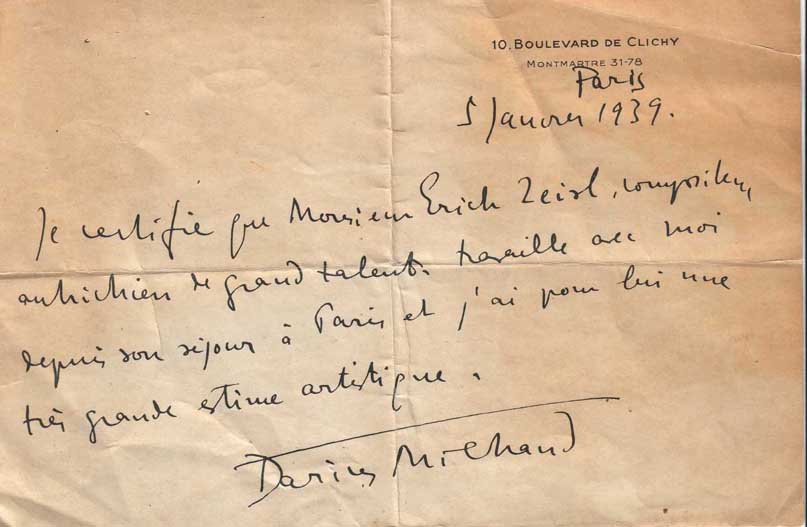 10, BOULEVARD DE CLICHY
MONTMARTRE 31-78
Paris
5 Janvier 1939.
Je certifie que Monsieur Erich Zeisl, compositeur
autrichien de grand talent, travaille avec moi
depuis son séjour à Paris et j'ai pour lui une
très grande estime artistique.
Darius Milhaud